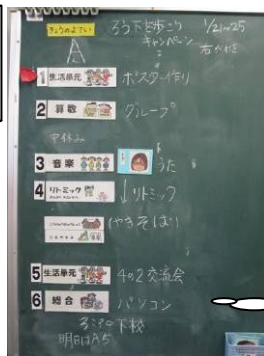 きょうのよてい
ろう下を歩こう
キャンペーン
1/21~25
右がわを
A
1 生活単元 ポスター作り
2 算数 グループ
中休み
3 音楽 うた
4 リトミック ↓リトミック
(やきそば)
5 生活単元 4の2交流会
6 総合 パソコン
下校
明日はA5